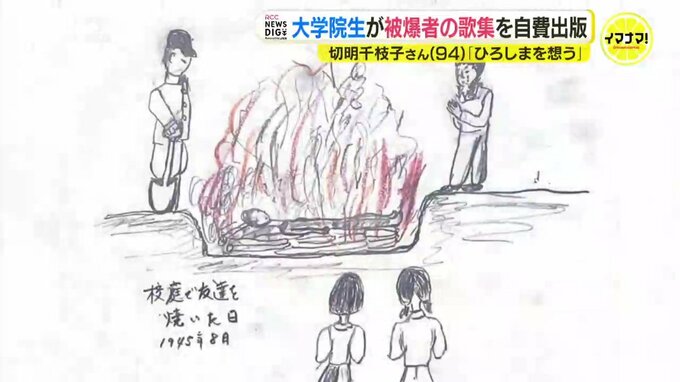 RCC
NEWS
DIG
大学院生が被爆者の歌集を自費出版
切明千枝子さん(94)「ひろしまを想う」
イマナマ!
校庭で友達を
焼いた日
1945年8月